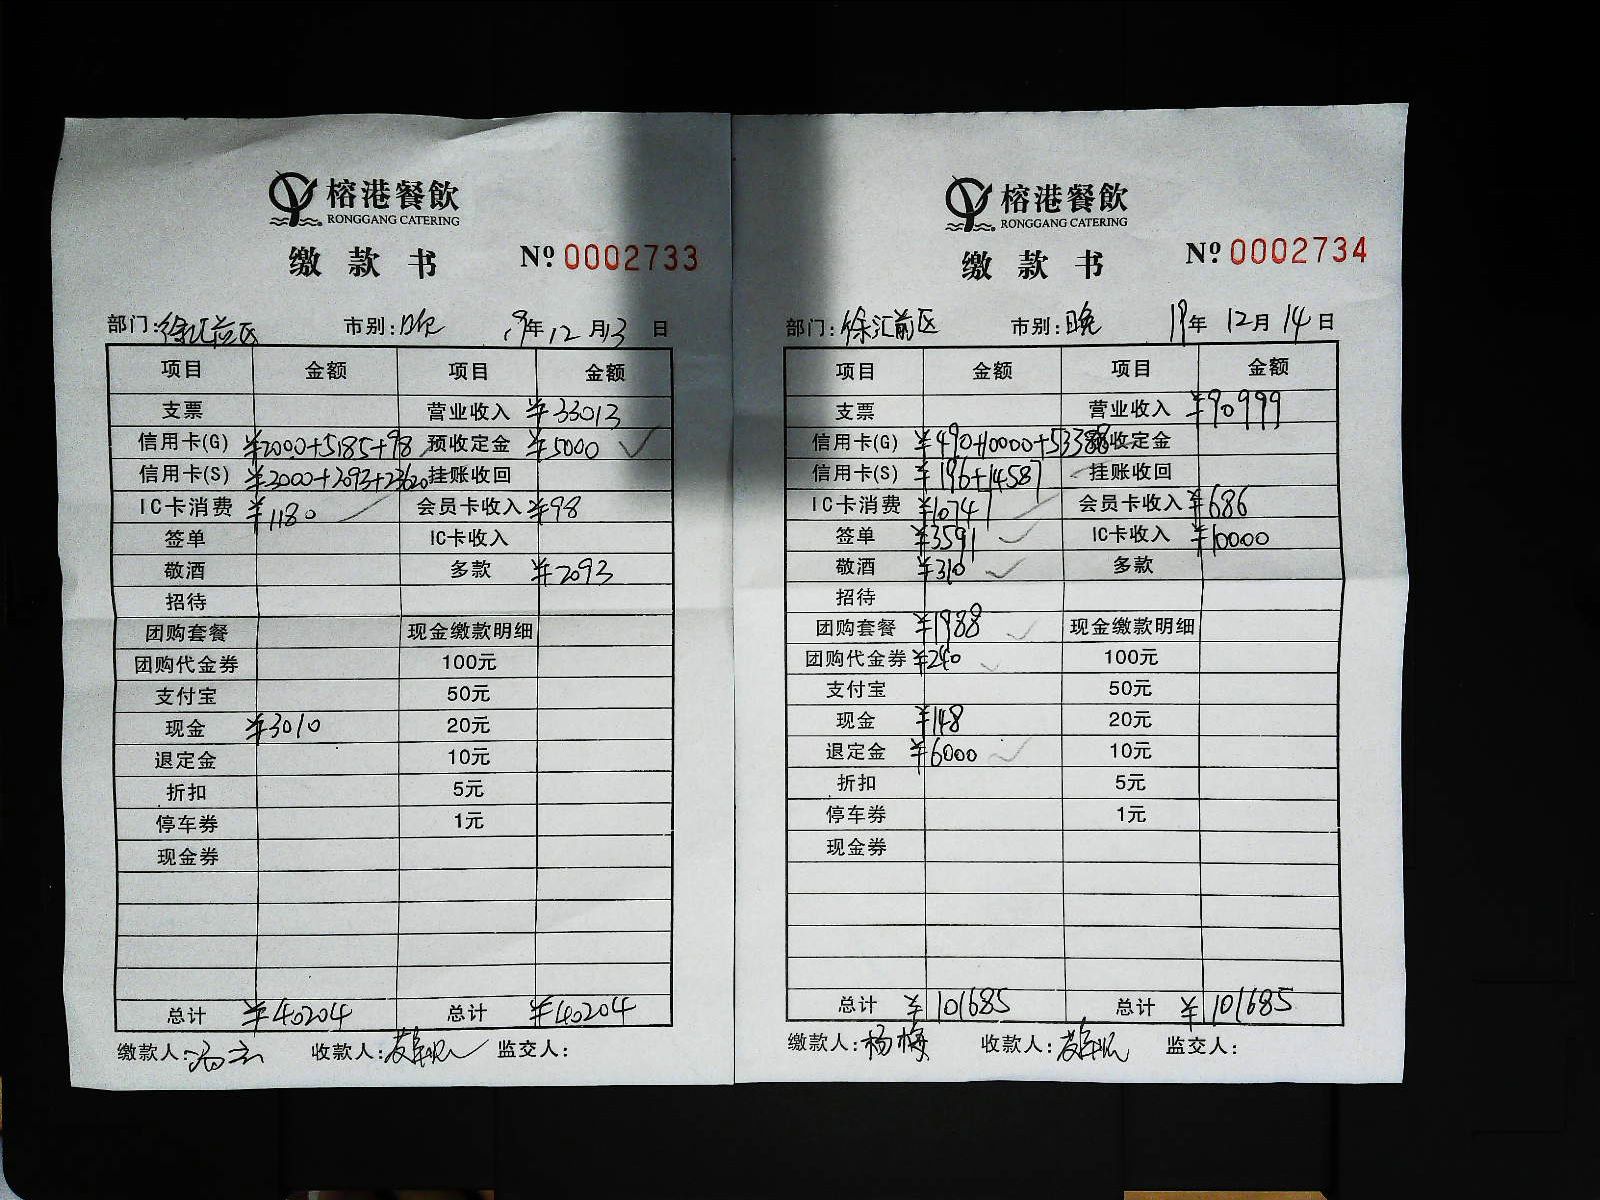 榕港餐飲
RONGGANG CATERING
缴款书 Nº 0002733
部门:徐汇前区 市别:晚 19年12月13日
项目 金额 项目 金额
支票 营业收入 ¥33013
信用卡(G) ¥2000+5185+98 预收定金 ¥5000
信用卡(S) ¥3000+2093+23620 挂账收回
IC卡消费 ¥1180 会员卡收入 ¥98
签单 IC卡收入
敬酒 多款 ¥2093
招待
团购套餐 现金缴款明细
团购代金券 100元
支付宝 50元
现金 ¥3010 20元
退定金 10元
折扣 5元
停车券 1元
现金券
总计 ¥40204 总计 ¥40204
缴款人: 收款人: 监交人:
榕港餐飲
RONGGANG CATERING
缴款书 Nº 0002734
部门:徐汇前区 市别:晚 19年12月14日
项目 金额 项目 金额
支票 营业收入 ¥90999
信用卡(G) ¥490+10000+53388 预收定金
信用卡(S) ¥196+14587 挂账收回
IC卡消费 ¥10747 会员卡收入 ¥686
签单 ¥3591 IC卡收入 ¥10000
敬酒 ¥310 多款
招待
团购套餐 ¥1988 现金缴款明细
团购代金券 ¥240 100元
支付宝 50元
现金 ¥148 20元
退定金 ¥6000 10元
折扣 5元
停车券 1元
现金券
总计 ¥101685 总计 ¥101685
缴款人:杨梅 收款人: 监交人: